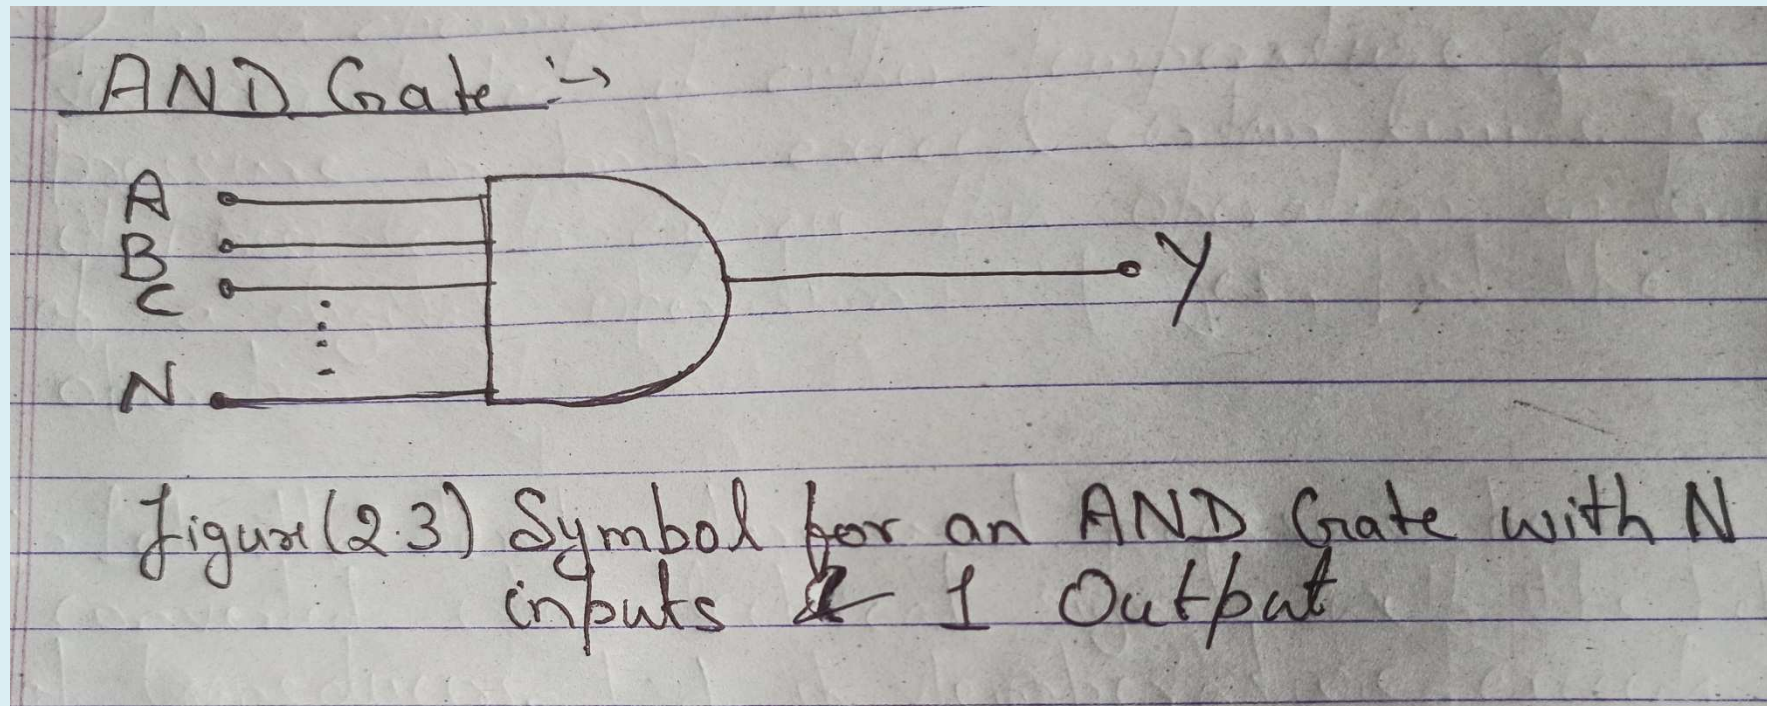 AND Gate :->
A
B
C
N
Y
Figure (2.3) Symbol for an AND Gate with N
inputs & 1 Output